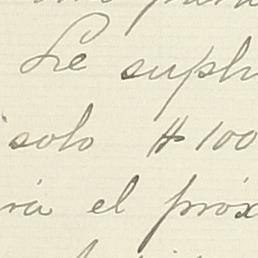 Le suph
solo $100
ra el próx